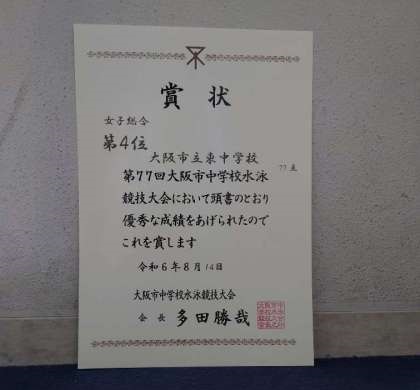 賞状
女子総合
第4位
大阪市立東中学校
77点
第77回大阪市中学校水泳
競技大会において頭書のとおり
優秀な成績をあげられたので
これを賞します
令和6年8月14日
大阪市中学校水泳競技大会
会長 多田勝哉